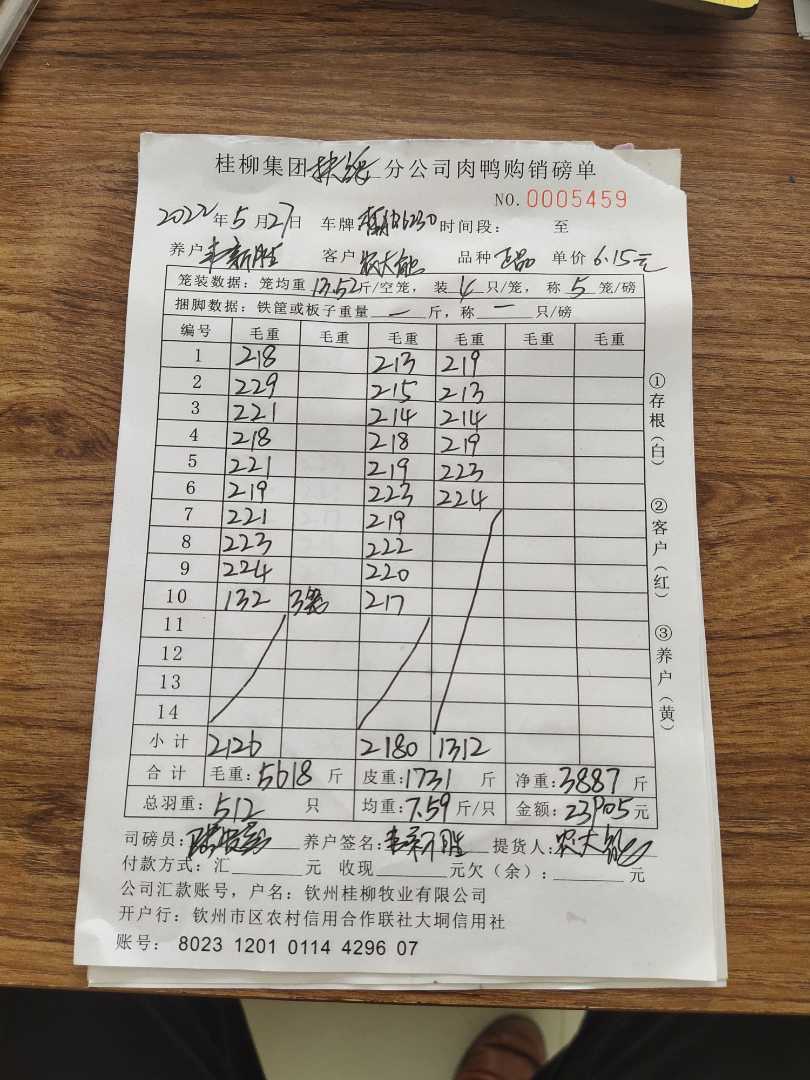 桂柳集团扶绥分公司肉鸭购销磅单
NO.0005459
2022年5月27日 车牌 6230 时间段: 至
养户 韦新胜 客户 农大能 品种 正品 单价 6.15元
笼装数据: 笼均重13.52斤/空笼, 装4只/笼, 称5笼/磅
捆脚数据: 铁筐或板子重量一斤, 称一只/磅
编号 毛重 毛重 毛重 毛重 毛重 毛重
1 218 213 219
2 229 215 213
3 221 214 214
4 218 218 219
5 221 219 223
6 219 223 224
7 221 219
8 223 222
9 224 220
10 132 3笼 217
11
12
13
14
小计 2126 2180 1312
合计 毛重:5618斤 皮重:1731斤 净重:3887斤
总羽重:512只 均重:7.59斤/只 金额:23905元
司磅员: 养户签名:韦新胜 提货人:农大能
付款方式: 汇 元 收现 元欠(余): 元
公司汇款账号, 户名: 钦州桂柳牧业有限公司
开户行: 钦州市区农村信用合作联社大垌信用社
账号: 8023 1201 0114 4296 07
①存根(白)
②客户(红)
③养户(黄)